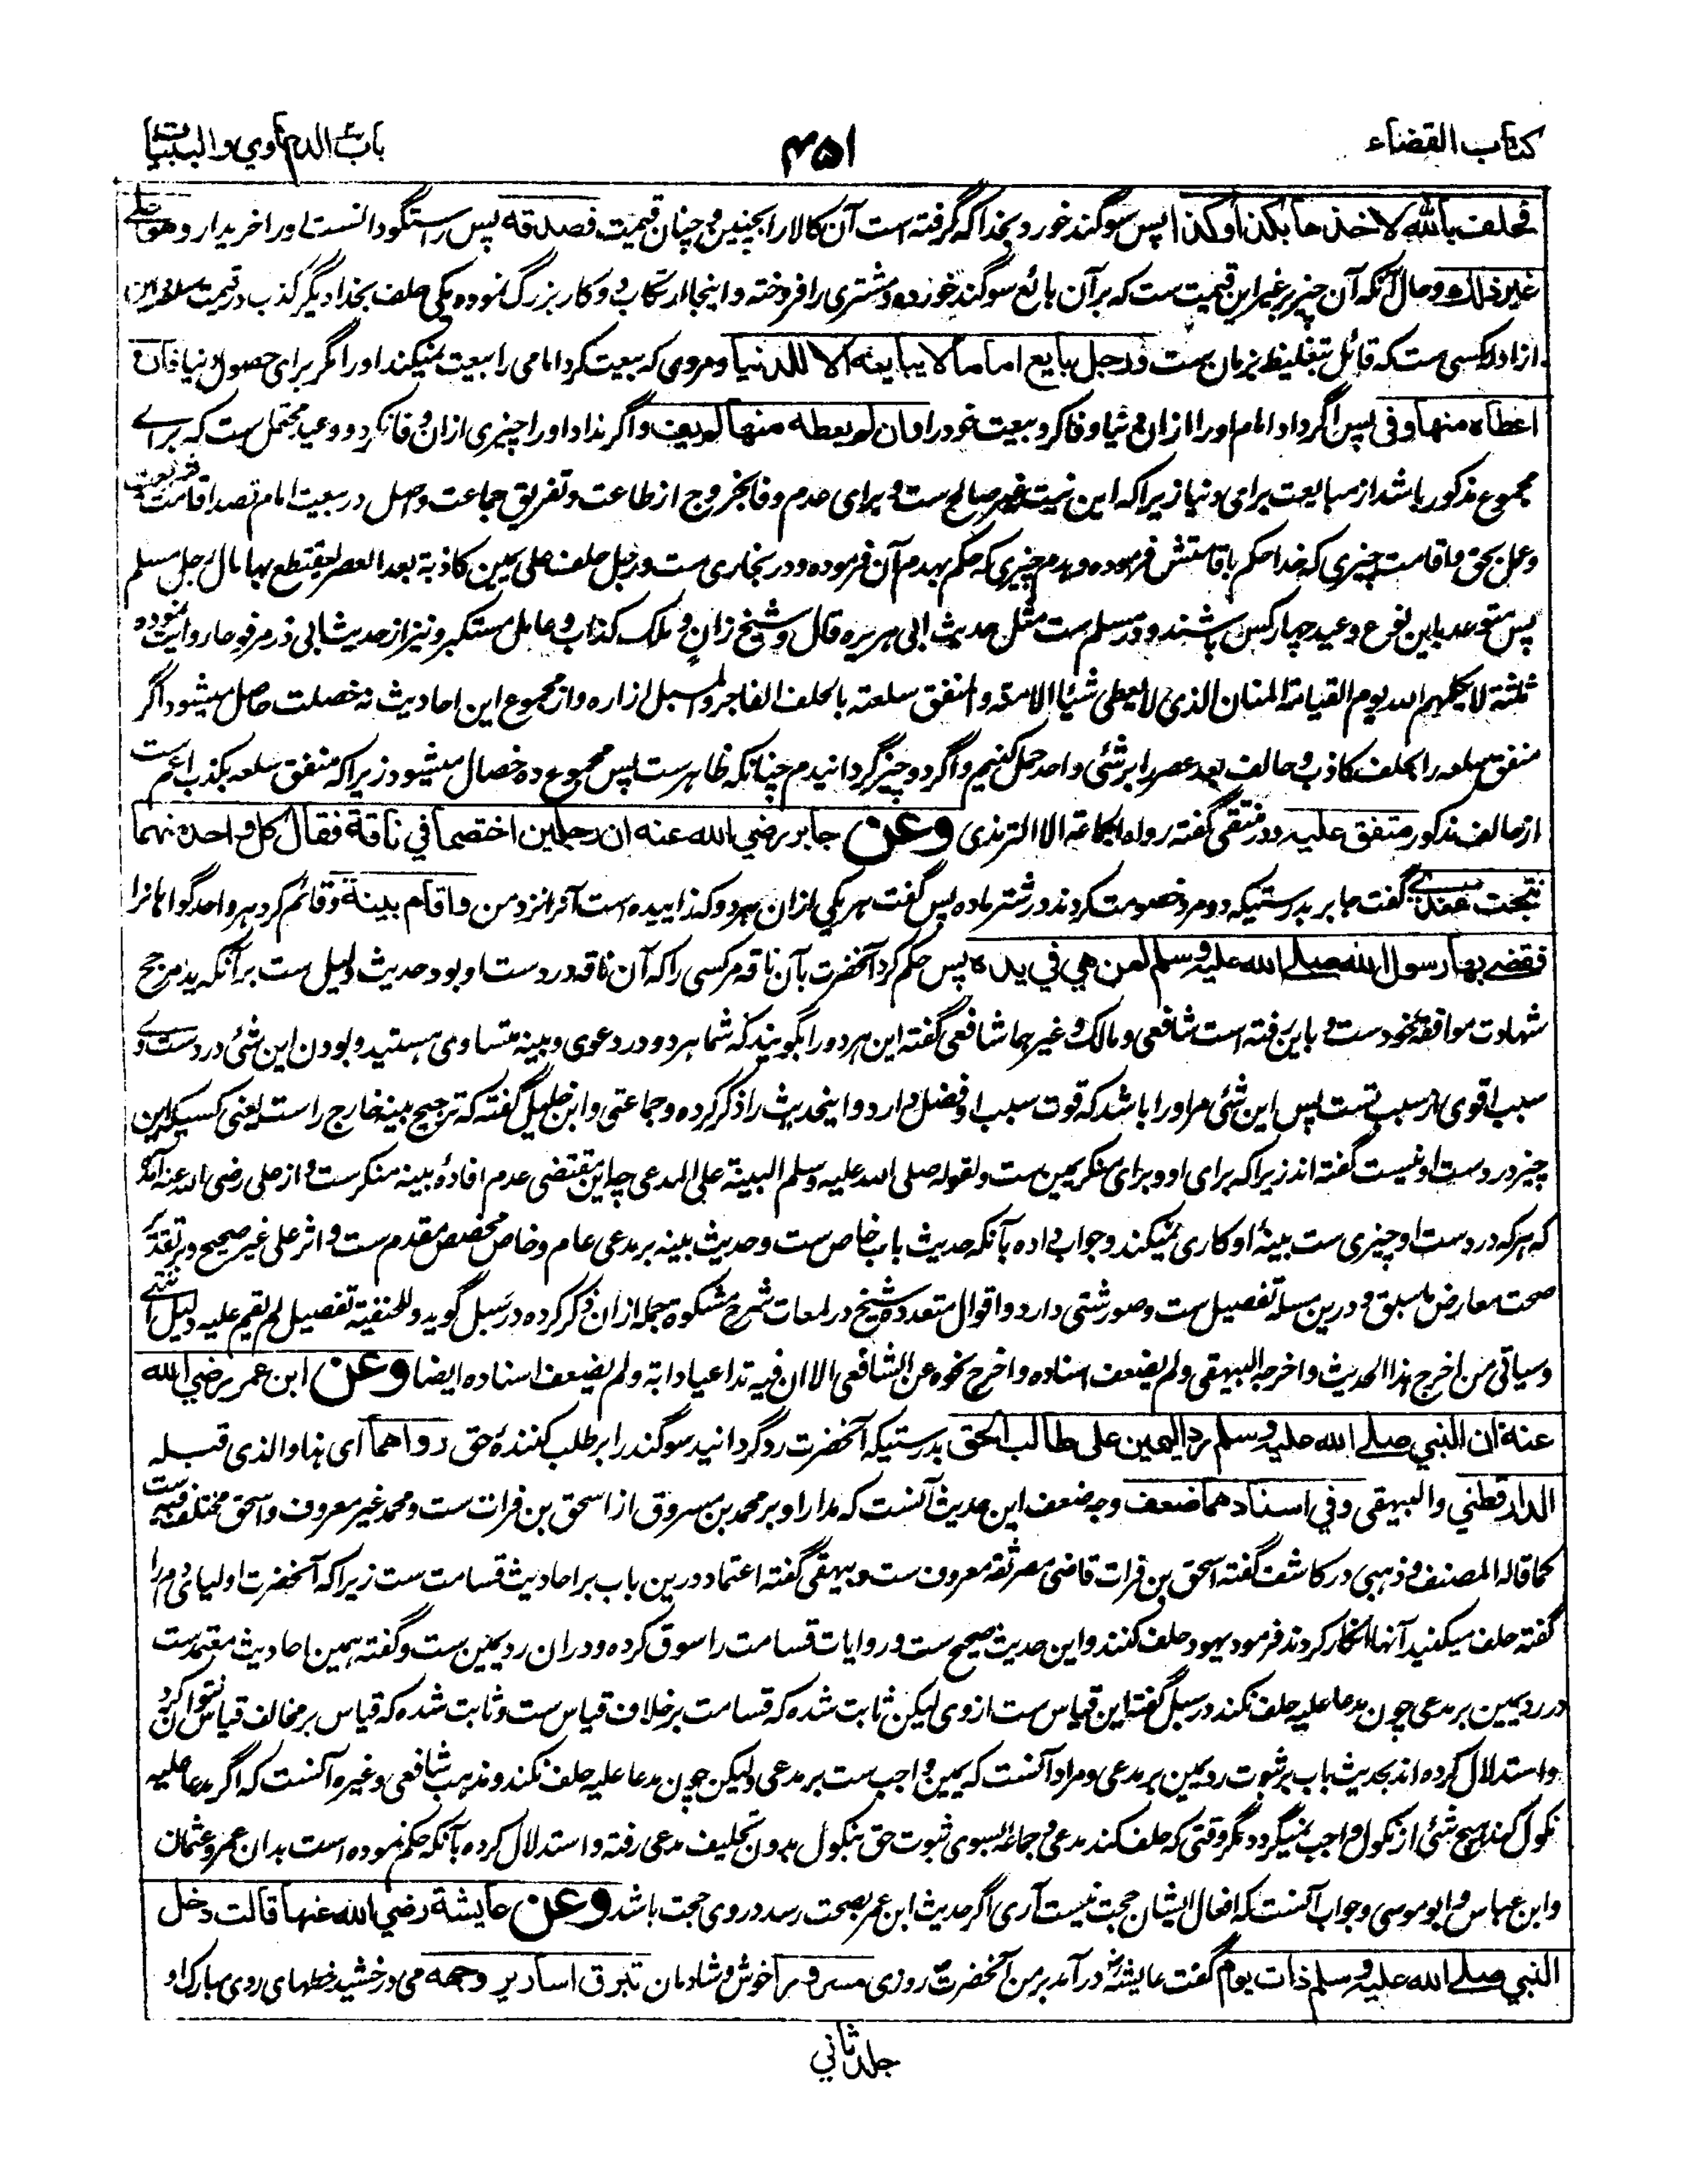 كتاب القضاء
۴۵۱
باب الدعاوي والبينات
فحلف بالله لاخذها بكذا وكذا پس سوگند خورد بخدا که گرفته است آن کالا را بچنین و چنان قیمت فصدقه پس راستگو دانست او را خریدار وهو على
غير ذلك و حال آنکه آن چیز بر غیر این قیمت ست که بر آن بائع سوگند خورده و مشتری را فروخته و اینجا ارتکاب دو کار بزرگ نموده یکی حلف بخدا دیگر کذب در قیمت سلعه و این
از ادله کسی ست که قائل بتغلیظ بزمان ست ورجل بايع اماما لا يبايعه الا للدنيا و مردی که بیعت کرد امامی را بیعت نمیکند او را مگر برای حصول دنیا فان
اعطاه منها وفى پس اگر داد امام او را از ان دنیا وفا کرد بیعت خود را وان لم يعطه منها لم يف و اگر نداد او را چیزی از ان وفا نکرد و وعید محتمل ست که برای
مجموع مذکور باشد از مبایعت برای دنیا زیرا که این نیت غیر صالح ست و برای عدم وفا بخروج از طاعت و تفریق جماعت و اصل در بیعت امام قصد اقامت شریعت
و عمل بحق و اقامت چیزی که خدا حکم باقامتش فرموده و هدم چیزی که حکم بهدم آن فرموده و در بخاری ست ورجل حلف على يمين كاذبة بعد العصر ليقتطع بها مال رجل مسلم
پس متوعد باین نوع وعید چهار کس باشند و در مسلم ست مثل حدیث ابی هریره قال وشيخ زان وملك كذاب وعامل مستكبر و نیز از حدیث ابی ذر مرفوعا روایت نموده
ثلثة لا يكلمهم الله يوم القيامة المنان الذي لا يعطي شيئا الا منه والمنفق سلعته بالحلف الفاجر والمسبل ازاره و از مجموع این احادیث نه خصلت حاصل میشود اگر
منفق سلعه را بحلف کاذب و حالف بعد عصر را بر شئی واحد حمل کنیم و اگر دو چیز گردانیدیم چنانکه ظاهر ست پس مجموع ده خصال میشود زیرا که منفق سلعه بکذب اعم ست
از حالف مذکور متفق عليه و در منتقی گفته رواه الجماعة الا الترمذی وعن جابر رضي الله عنه ان رجلين اختصما في ناقة فقال كل واحد منهما
نتجت عندي گفت جابر بدرستیکه دو مرد خصومت کردند در شتر ماده پس گفت هر یکی از ان هر دو که زاییده است آنرا نزد من واقام بينة و قائم کرد هر واحد گواهانرا
فقضى بها رسول الله صلى الله عليه وسلم لمن هي في يده پس حکم کرد آنحضرت بآن ناقه مر کسی را که آن ناقه در دست او بود حدیث دلیل ست بر آنکه ید مرجح
شهادت موافقه خود ست و باین رفته است شافعی و مالک و غیر هما شافعی گفته این هر دو را بگویند که شما هر دو در دعوی و بینه متساوی هستید و بودن این شئی در دست وے
سبب اقوی از سبب تست پس این شئی مر او را باشد که قوت سبب او فضل دارد و این حدیث را ذکر کرده و جماعتی و ابن حلیل گفته که ترجیح بینه خارج راست یعنی کسیکه این
چیز در دست او نیست گفته اند زیرا که برای او و برای منکر یمین ست ولقوله صلى الله عليه وسلم البينة على المدعى چه این مقتضی عدم افادهٔ بینه منکر ست و از علی رضی الله عنه آمده
که هر که در دست او چیزی ست بینهٔ او کاری نمیکند و جواب داده بآنکه حدیث باب خاص ست و حدیث بینه بر مدعی عام و خاص مخصص مقدم ست و اثر علی غیر صحیح و بر تقدیر
صحت معارض ما سبق و درین مسئله تفصیل ست و صور شتی دارد و اقوال متعدده شیخ در لمعات شرح مشکوة جمله از ان ذکر کرده در سبل گوید وللحنفية تفصيل لم يقم عليه دليل انتهى
وسياتي من اخرج هذا الحديث واخرجه البيهقي ولم يضعف اسناده واخرج نحوه عن الشافعي الا ان فيه تداعيا دابة ولم يضعف اسناده ايضا وعن ابن عمر رضي الله
عنه ان النبي صلى الله عليه وسلم رد اليمين على طالب الحق بدرستیکه آنحضرت رو گردانید سوگند را بر طلب کنندهٔ حق رواهما ای هذا والذی قبله
الدارقطني والبيهقى وفي اسنادهما ضعف وجه ضعف این حدیث آنست که مدار او بر محمد بن مسروق از اسحق بن فرات ست و محمد غیر معروف و اسحق مختلف فیه ست
كما قاله المصنف و ذهبی در کاشف گفته اسحق بن فرات قاضی مصر ثقه معروف ست و بیهقی گفته اعتماد درین باب بر احادیث قسامت ست زیرا که آنحضرت اولیای دم را
گفته حلف میکنید آنها انکار کردند فرمود یهود حلف کنند و این حدیث صحیح ست و روایات قسامت را سوق کرده و در ان رد یمین ست و گفته همین احادیث معتمد ست
در رد یمین بر مدعی چون مدعا علیه حلف نکند در سبل گفته این قیاس ست از وی لیکن ثابت شده که قسامت بر خلاف قیاس ست و ثابت شده که قیاس بر مخالف قیاس نتوان کرد
و استدلال کرده اند بحدیث باب بر ثبوت رد یمین بر مدعی و مراد آنست که یمین واجب ست بر مدعی ولیکن چون مدعا علیه حلف نکند و مذهب شافعی و غیره آنست که اگر مدعا علیه
نکول کند هیچ شئی از نکول واجب نمیگردد مگر وقتی که حلف کند مدعی و جماعه بسوی ثبوت حق بنکول بدون تحلیف مدعی رفته و استدلال کرده بآنکه حکم نموده است بدان عمر و عثمان
و ابن عباس و ابو موسی و جواب آنست که افعال ایشان حجت نیست آری اگر حدیث ابن عمر بصحت رسد در وی حجت باشد وعن عايشة رضي الله عنها قالت دخل
النبي صلى الله عليه وسلم ذات يوم گفت عایشه در آمد بر من آنحضرت روزی مسرورا خوش و شادمان تبرق اسارير وجهه می درخشید خطهای روی مبارک او
جلد ثاني